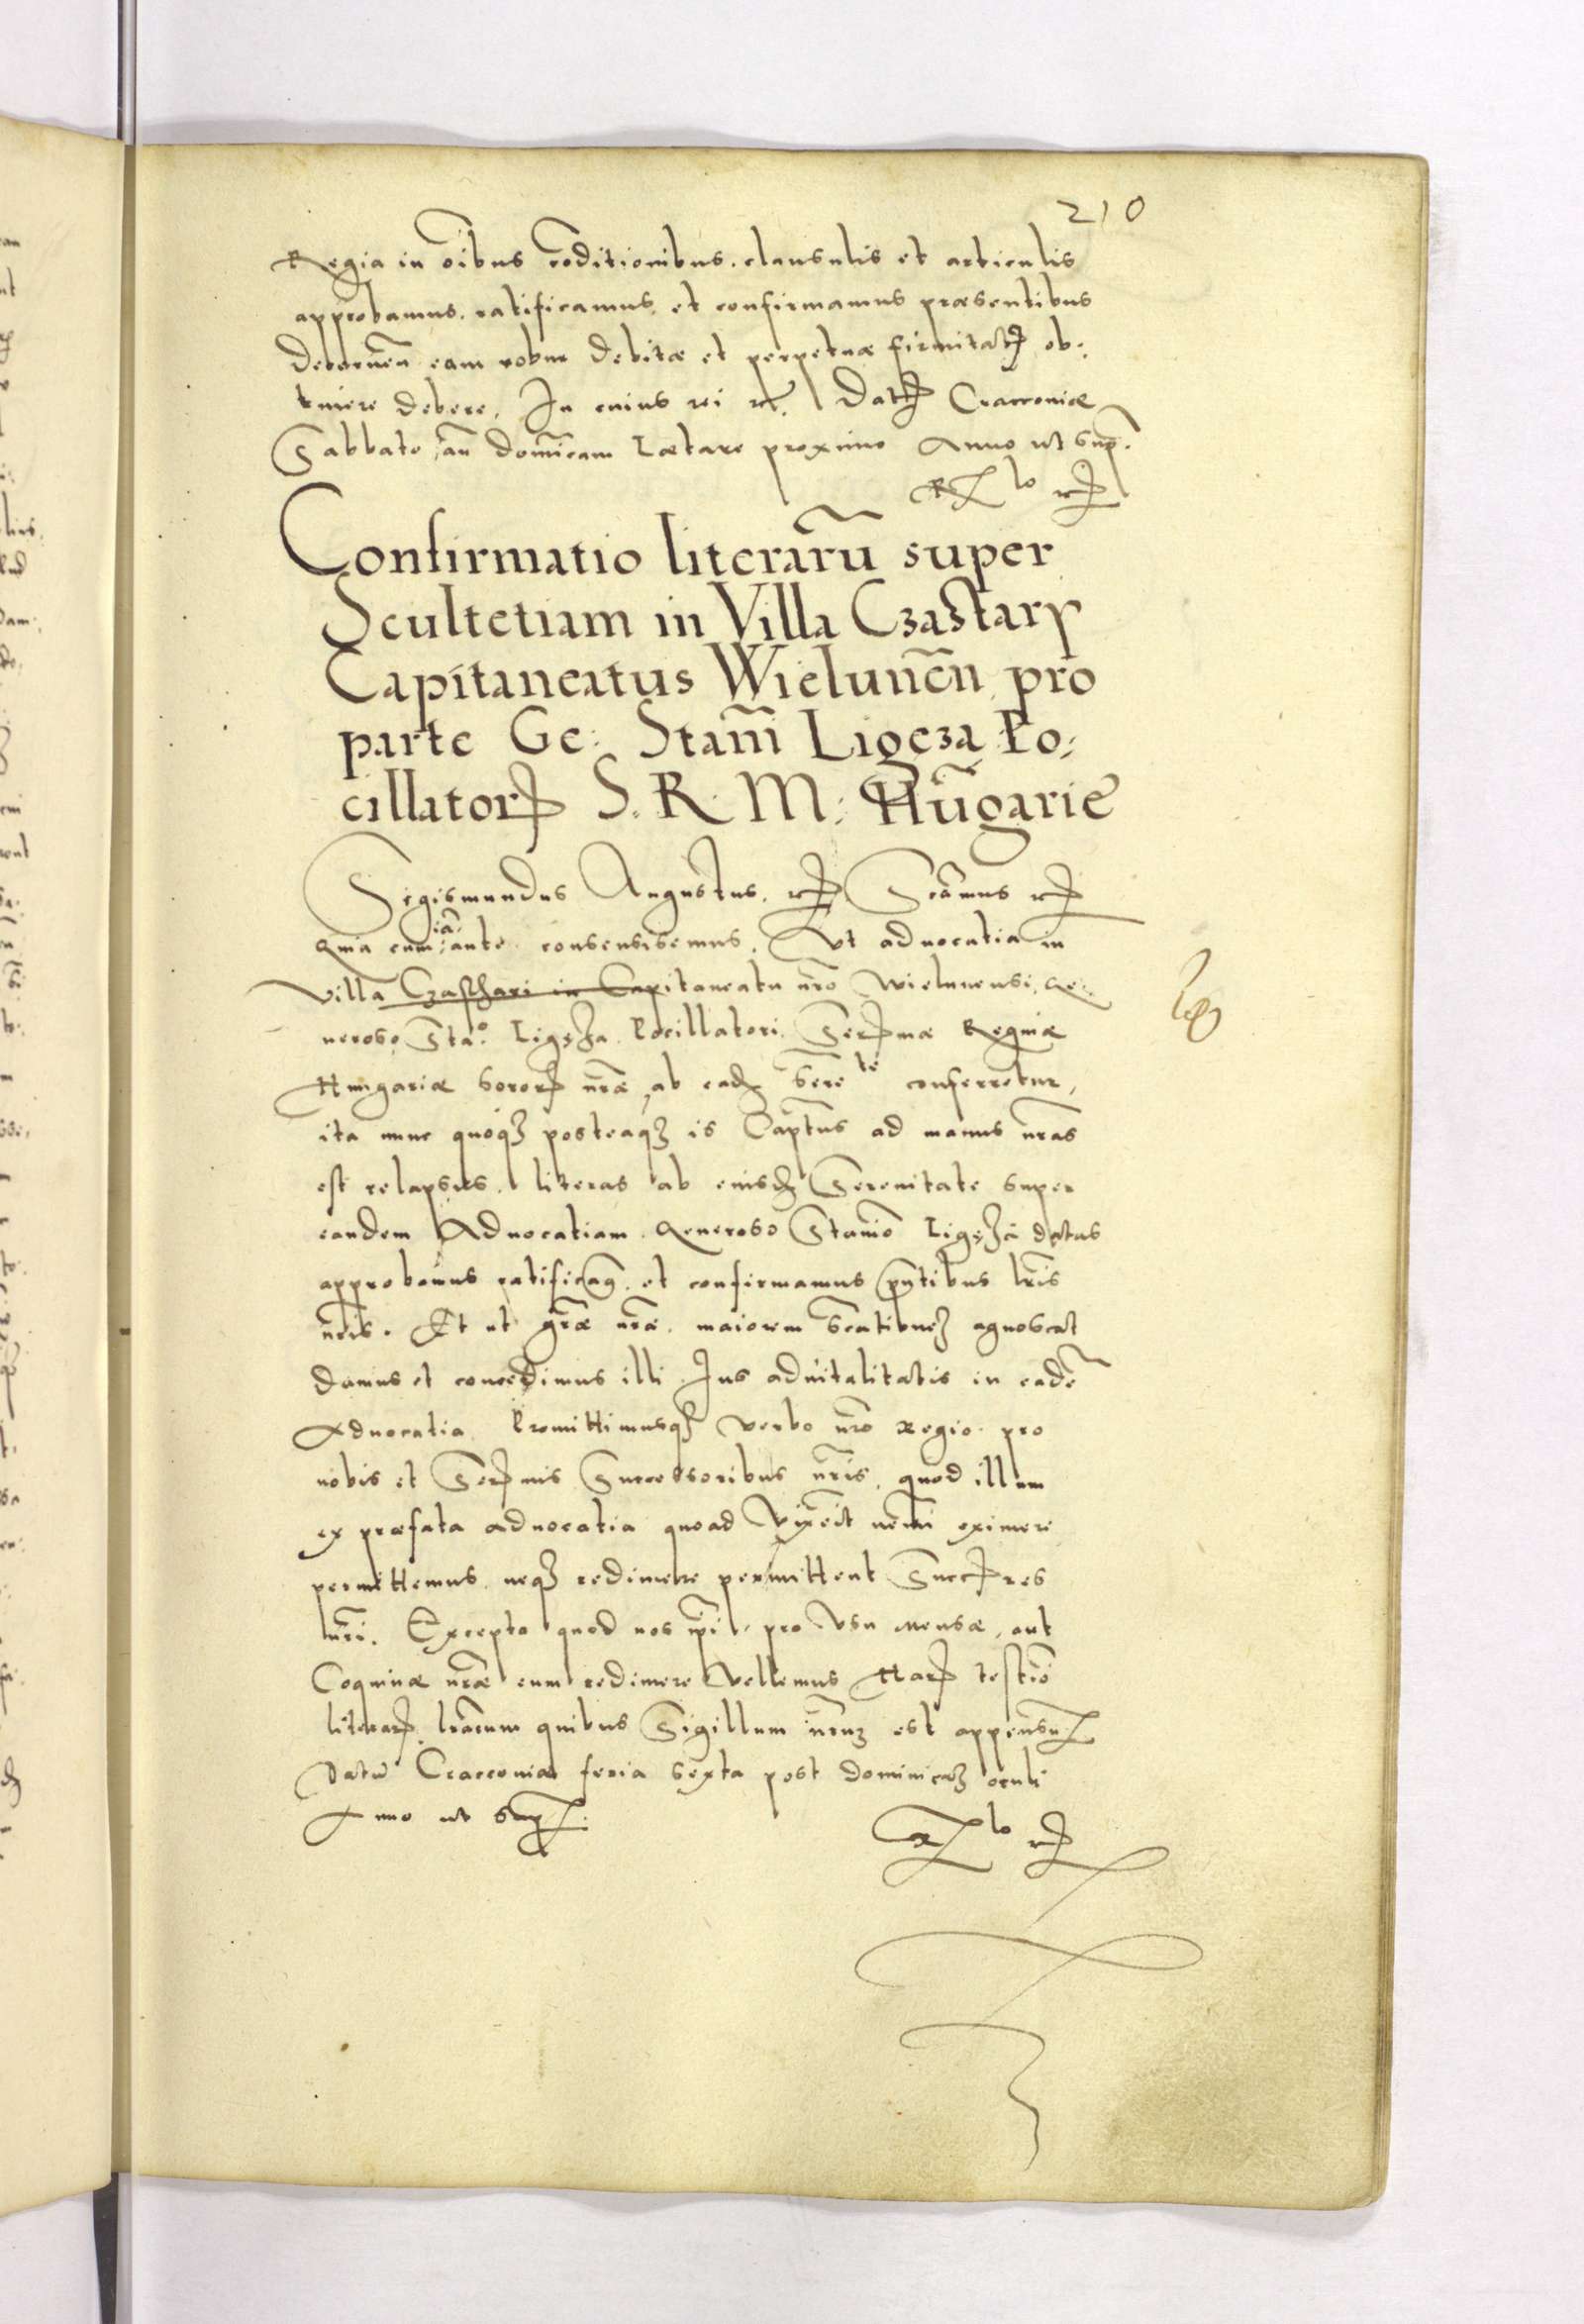 210
Regia in oībus cōditionibus, clausulis et articulis
approbamus, ratificamus, et confirmamus præsentibus
decernen̄ eam robur debitæ et perpetuæ firmitatꝭ ob:
tinere debere. In cuius rei rꝭ. Datꝭ Cracoviæ
Sabbato an̄ domīcam Lætare proximo Anno ut sup̄.
Confirmatio literarū super
Scultetiam in Villa Czastary
Capitaneatus Wielunēn pro
parte Ge: Stanī Ligęza Po:
cillatorꝭ S. R. M: Hūgarie
Sigismundus Augustus, rꝭ Sc̄amus rꝭ
Quia cum iā ante consensissemus, Ut advocatia in
Villa Czasthari in Capitaneatu nr̄o Wielunensi, Ge:
neroso Sta:º Ligęza Pocillatori Serꝭmæ Reginæ
Hungariæ sororꝭ nr̄æ, ab eadꝫ Sere te conferretur,
ita nunc quoqꝫ posteaqꝫ is Cap̄tus ad manus nr̄as
est relapsus, literas ab eiusdꝫ Serenitate super
eandem Advocatiam Generoso Stanīo Ligęza datas
approbamus ratificaꝫ et confirmamus p̄ntibus lr̄is
nr̄is. Et ut gr̄æ nr̄æ maiorem sēcationeꝫ agnoscat
damus et concedimus illi Ius advitalitatis in eadē
Advocatia Promittimusqꝫ verbo nr̄o Regio pro
nobis et Serꝭmis Successoribus nr̄is, quod illum
ex præfata advocatia quoad vixerit nemīni eximere
permittemus, neqꝫ redimere permittent Succꝭres
nr̄i. Excepto quod nos ip̄i pro Usu mensæ, aut
Coquinæ nr̄æ eum redimere vellemus Harꝭ testīo
literarꝭ quibus Sigillum nr̄uꝫ est appensuꝫ
Datū Cracoviæ feria sexta post dominicaꝫ oculi
Anno ut supꝭ.